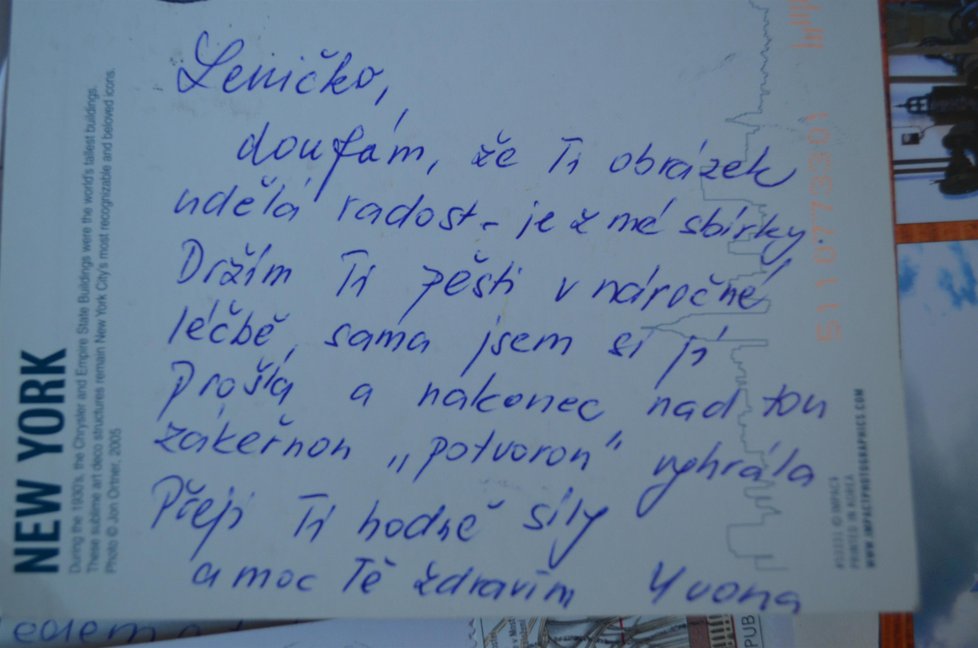 Leničko,
doufám, že Ti obrázek
udělá radost - je z mé sbírky.
Držím Ti pěsti v náročné
léčbě, sama jsem si jí
prošla a nakonec nad tou
zákeřnou „potvorou" vyhrála
Přeji Ti hodně síly
a moc Tě zdravím Yvona
NEW YORK
During the 1930's, the Chrysler and Empire State Buildings were the world's tallest buildings.
These sublime art deco structures remain New York City's most recognizable and beloved icons.
Photo © Jon Ortner, 2005
PRINTED IN KOREA
WWW.IMPACTPHOTOGRAPHICS.COM